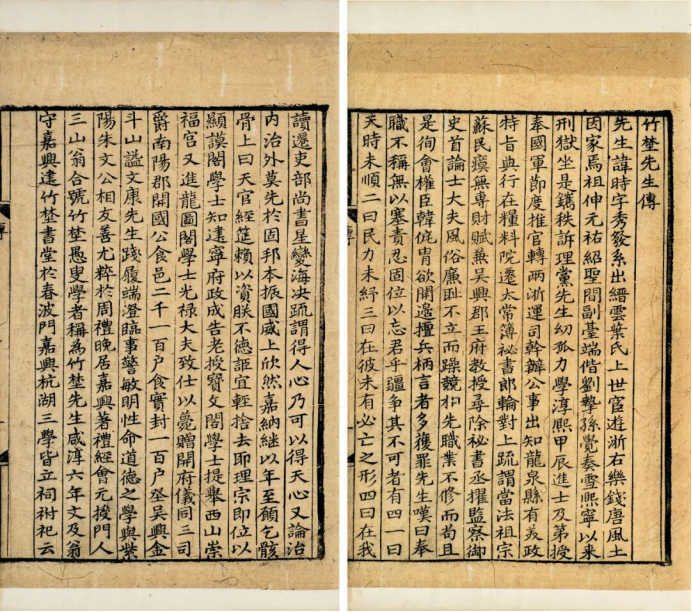 竹埜先生傳
先生諱時字秀發系出縉雲葉氏上世宦遊浙右樂錢唐風土
因家焉祖伸元祐紹聖間副臺端偕劉摯孫覺奏雪熙寧以來
刑獄坐是鐫秩訴理黨先生幼孤力學淳熙甲辰進士及第授
奉國軍節度推官轉兩浙運司幹辦公事出知龍泉縣有美政
特旨與行在糧料院遷太常簿秘書郎輪對上疏謂當法祖宗
蘇民瘼無專財賦兼吳興郡王府教授尋除祕書丞擢監察御
史首論士大夫風俗廉恥不立而躁競扣先職業不修而苟且
是徇會權臣韓侂胄欲開邊擅兵柄言者多獲罪先生嘆曰奉
職不稱無以塞責忍固位以忘君乎疆爭其不可者有四一曰
天時未順二曰民力未紓三曰在彼未有必亡之形四曰在我
讀遷吏部尚書星變海决疏謂得人心乃可以得天心又論治
内治外莫先於固邦本振國威上欣然嘉納繼以年至願乞骸
骨上曰天官經筵賴以資朕不德詎宜輕捨去即理宗即位以
顯謨閣學士知建寧府政成告老授寶文閣學士提舉西山崇
福宮又進龍圖閣學士光禄大夫致仕以薨贈開府儀同三司
爵南陽郡開國公食邑二千一百户食實封一百户塟吳興金
斗山謚文康先生踐履端澄臨事警敏明性命道德之學與紫
陽朱文公相友善尤粹於周禮晚居嘉興著禮經會元揆門人
三山翁合號竹埜愚叟學者稱為竹埜先生咸淳六年文及翁
守嘉興建竹埜書堂於春波門嘉興杭湖三學皆立祠祔祀云